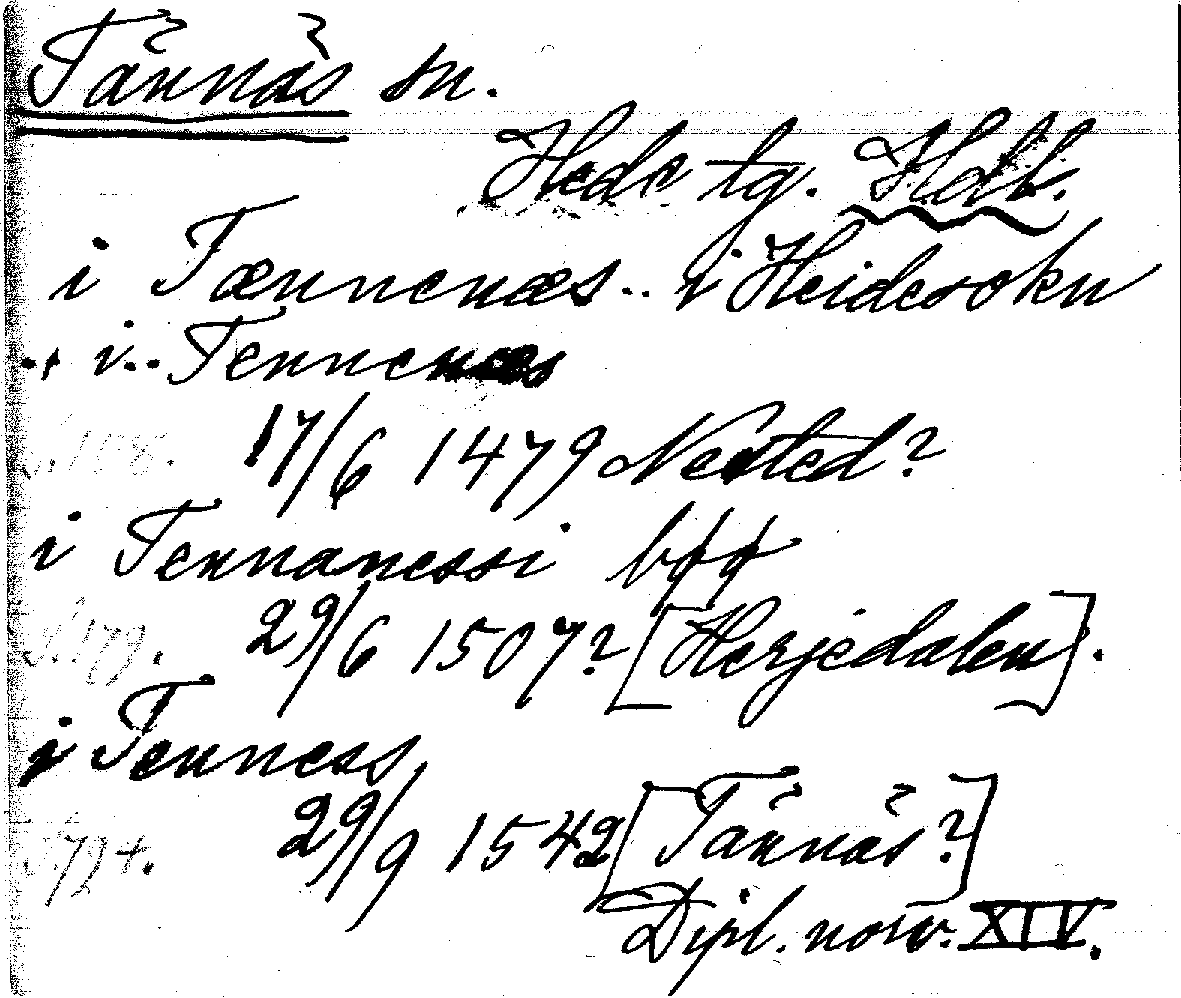 Tännäs sn.
Hede tg. Hdl.
i Tænnenæs .. i Heidesokn
.. i .. Tennenæs
s. 108. 17/6 1479 Nested?
i Tennanessi bffg
s. 179. 29/6 1507? [Herjedalen].
i Tenness
29/9 1542 [Tännäs?]
Dipl. norv. XIV.